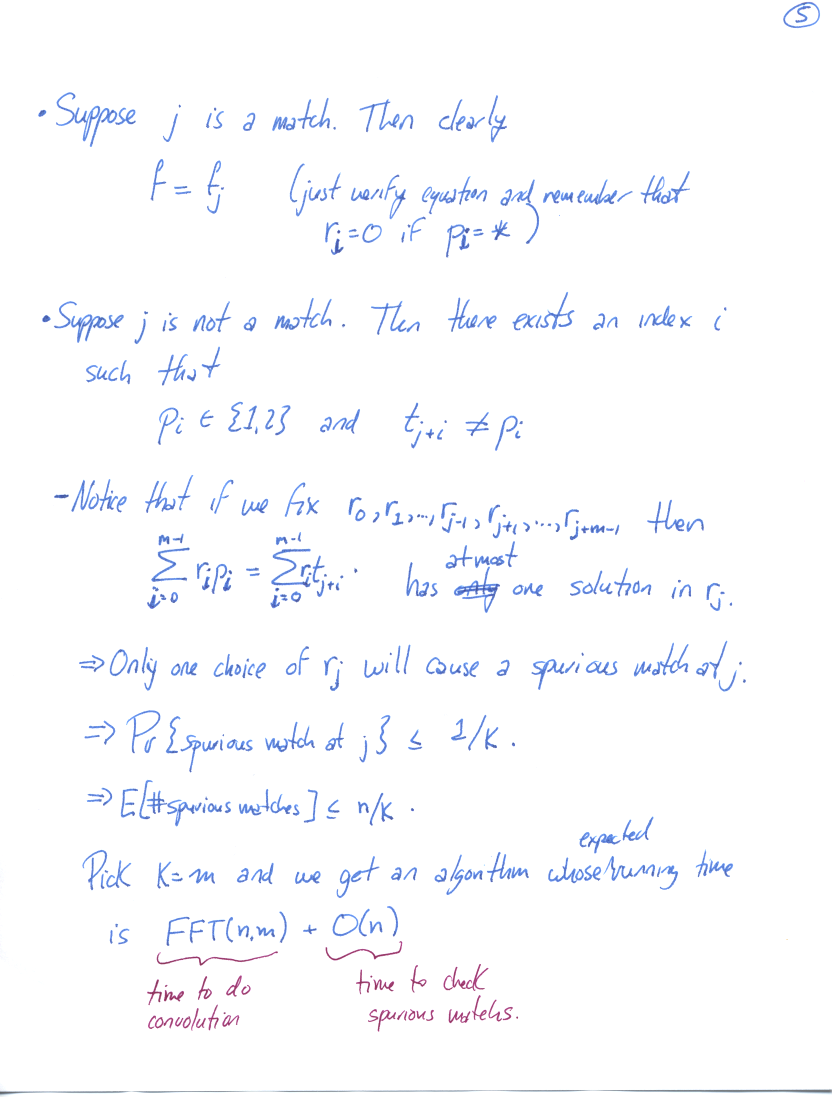 5
• Suppose j is a match. Then clearly
f = f_j (just verify equation and remember that
r_i=0 if p_i=* )
• Suppose j is not a match. Then there exists an index i
such that
p_i ∈ {1,2} and t_{j+i} ≠ p_i
- Notice that if we fix r_0, r_1, ..., r_{j-1}, r_{j+1}, ..., r_{j+m-1} then
∑_{i=0}^{m-1} r_i p_i = ∑_{i=0}^{m-1} r_i t_{j+i} . has at most one solution in r_j.
⇒ Only one choice of r_j will cause a spurious match at j.
⇒ Pr {spurious match at j} ≤ 1/K .
⇒ E[# spurious matches] ≤ n/K .
Pick K=m and we get an algorithm whose expected running time
is FFT(n,m) + O(n)
time to do
convolution
time to check
spurious matchs.